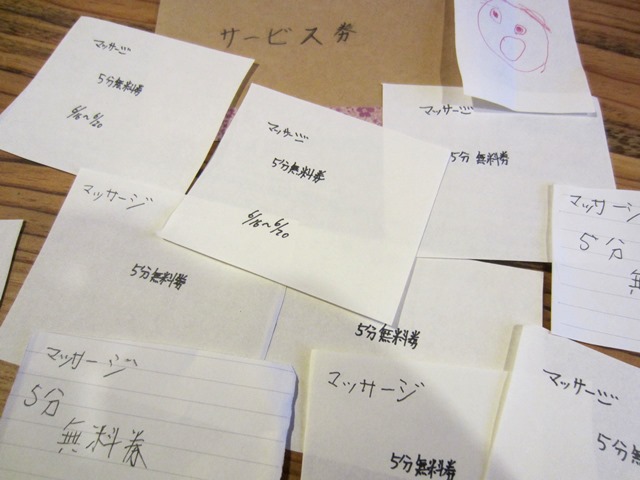 サービス券
マッサージ
5分無料券
6/16~6/20
マッサージ
5分無料券
6/16~6/20
マッサージ
5分 無料券
マッサージ
5分無料券
マッサージ
5分
無
5分無料券
マッサージ
5分
無料券
マッサージ
5分無料券
マッサージ
5分無